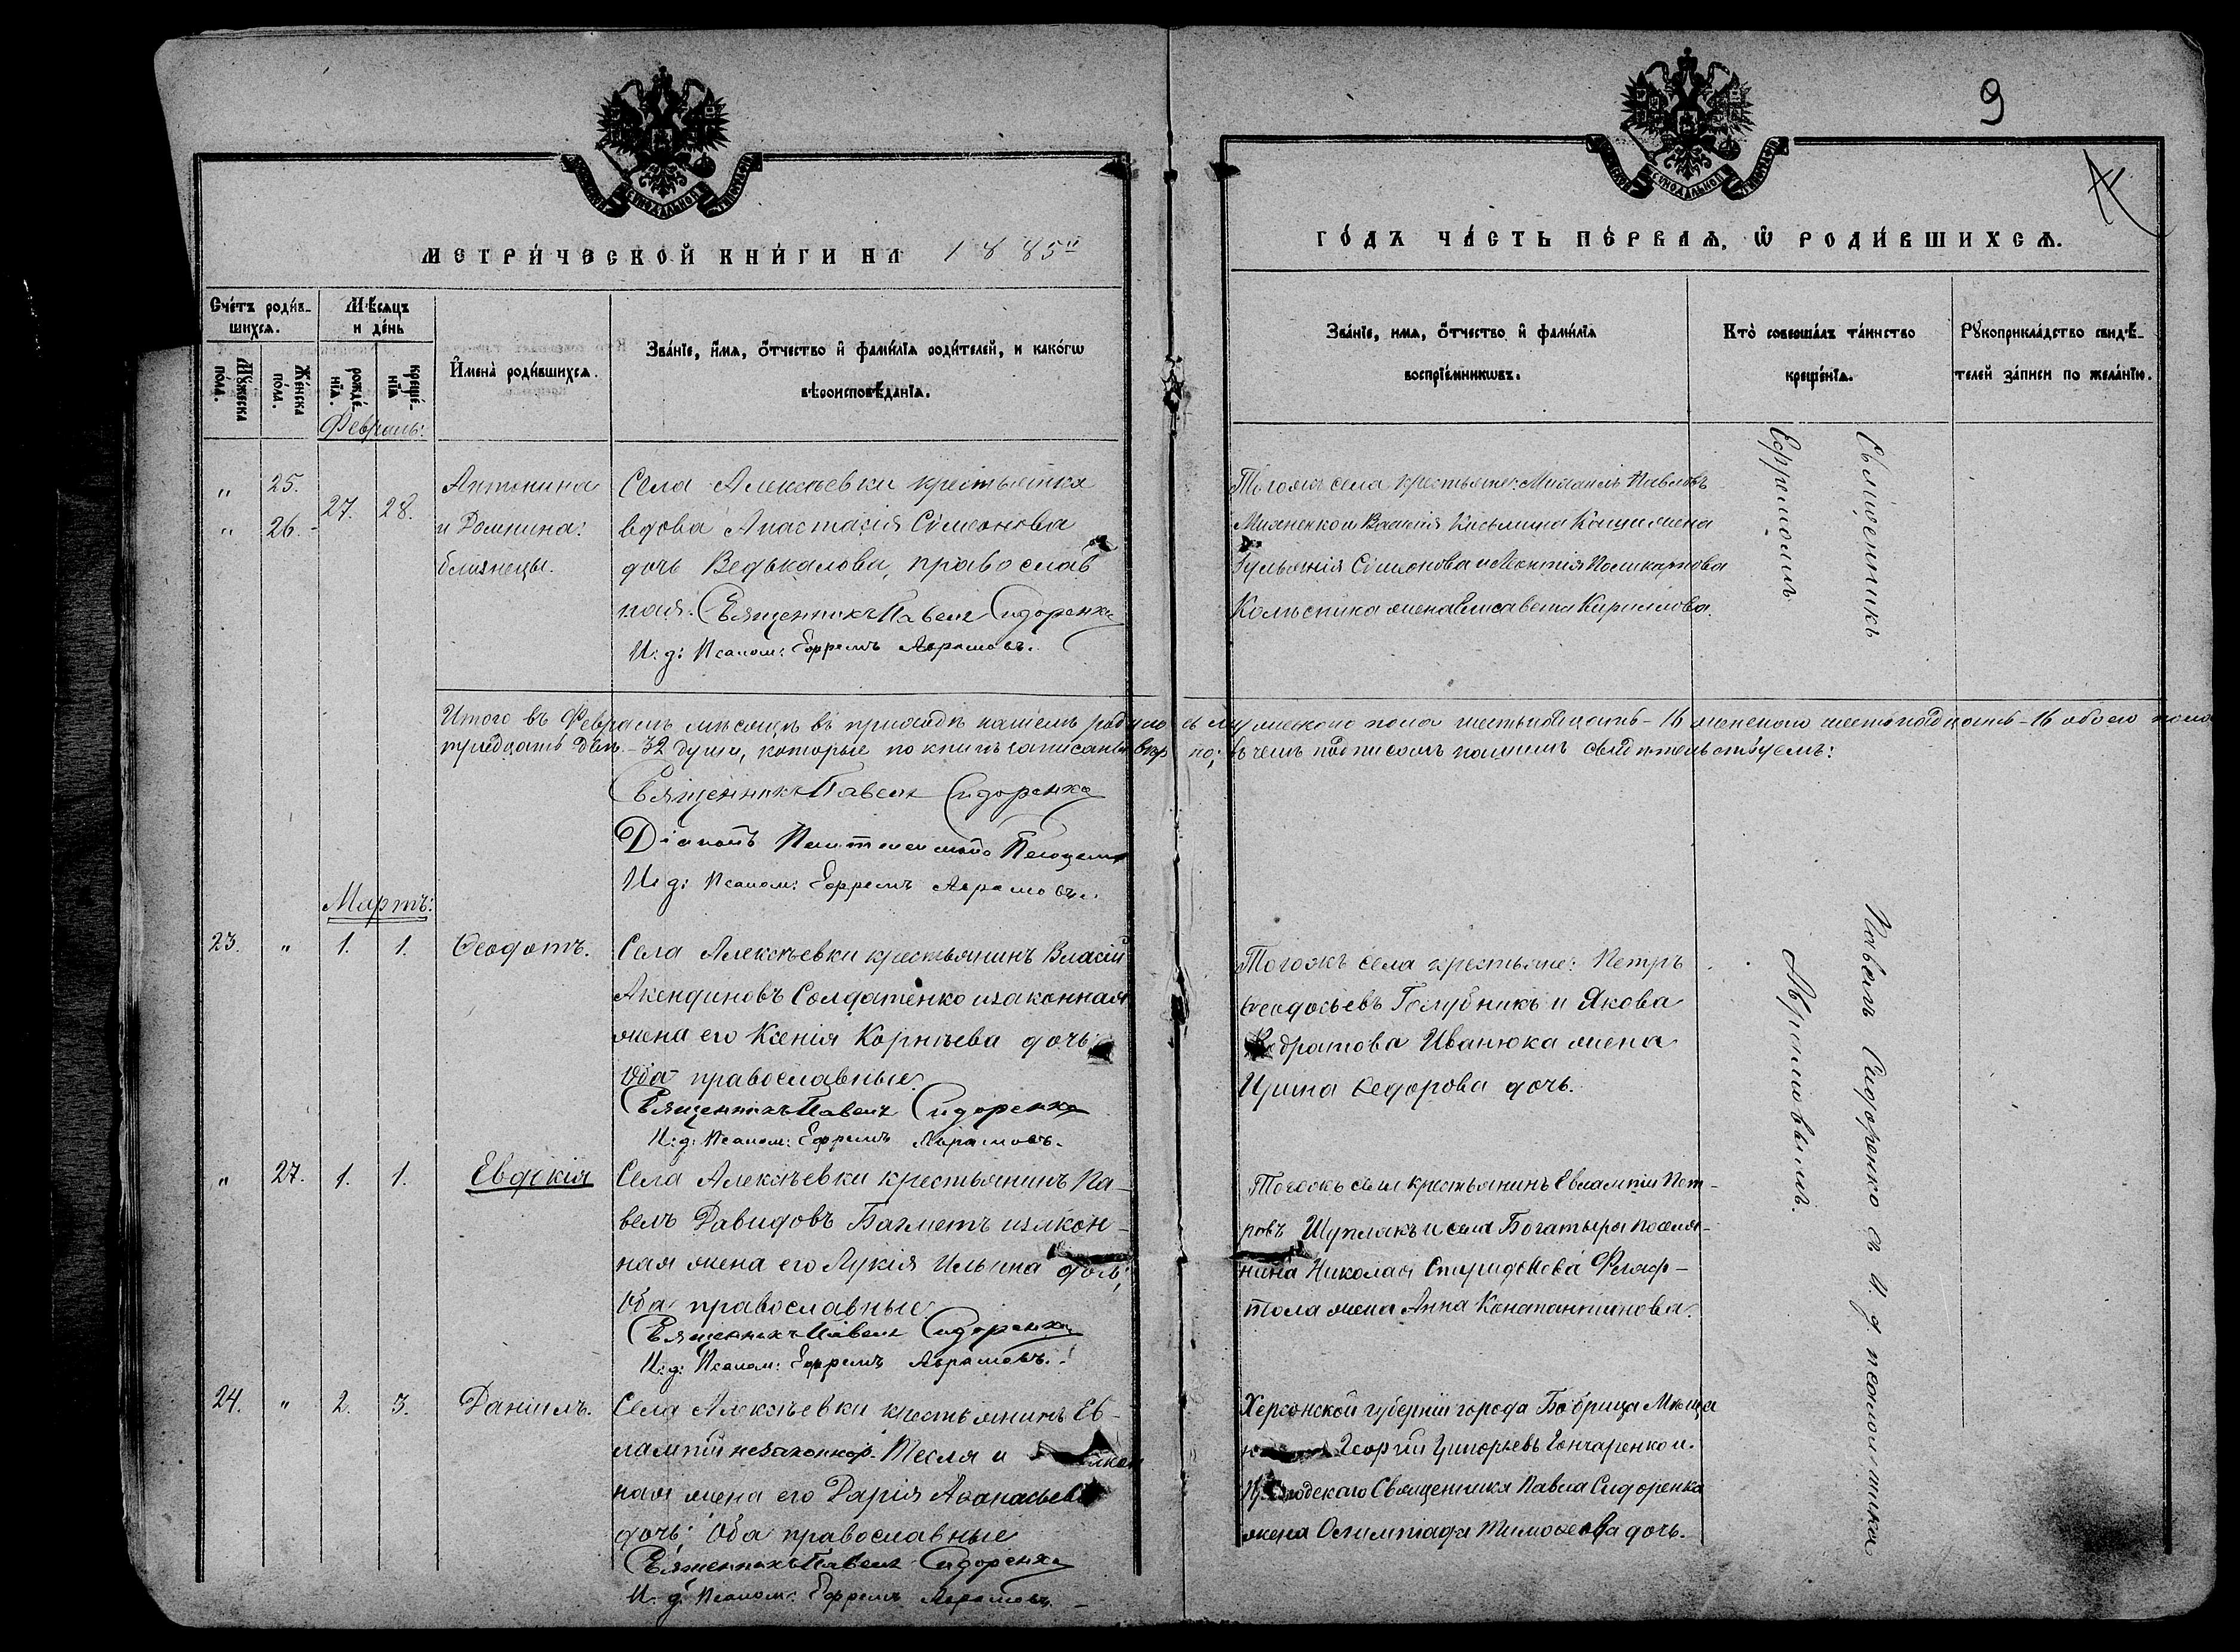 9
МЕТРИ́ЧЕСКОЙ КНИ́ГИ НА 1885й
ГО́ДЪ ЧА́СТЬ ПЕ́РВАЯ, Ѡ РОДИ́ВШИХСЯ.
Сче́тъ роди́в-
шихся.
Мѣ́сяцъ
и де́нь
Му́жеска
по́ла.
Же́нска
по́ла.
рожде́-
нїя.
креще́-
нїя
Имена̀ роди́вшихся.
Зва́нїе, и́мя, о́тчество и фами́лїя роди́телей, и како́гѡ
вѣроисповѣ́данїя.
Зва́нїе, имя, о́тчество и фами́лїя
воспрїе́мникѡвъ.
Кто̀ соверша́лъ та́инство
креще́нїя.
Рꙋкоприкла́дство свидѣ́-
телей за́писи по жела́нїю.
Февраль:
" 25.
" 26.
27. 28.
Антонина
и Домнина:
близнецы.
Села Алексѣевки крестьянка
вдова Анастасія Сімеонова
дочь Ведькалова, православ
ная. Священникъ Павелъ Сидоренко
И: д: Псалом: Ефремъ Абрамовъ.
Тогожъ села крестьяне: Михаилъ Павловъ
Василія Косьмина жена
Гульянія Сімеонова и Леонтія Поликарпова
Колѣсника жена Елисавета Кириллова.
Священникъ
Ефремомъ
Итого въ Февралѣ мѣсяцѣ въ приходѣ нашемъ родилось мужеского пола шестьнадцать - 16 женского шестьнадцать - 16 обоего пола
тридцать двѣ - 32 души, которые по книгѣ записаны вѣрно, въ чемъ подписомъ нашимъ свидѣтельствуемъ:
Священникъ Павелъ Сидоренко
Діаконъ
И: д: Псалом: Ефремъ Абрамовъ.
Мартъ:
23. " 1. 1. Ѳеодотъ.
Села Алексѣевки крестьянинъ Власій
Акендиновъ Солдатенко и законная
жена его Ксенія Корнѣева дочь;
Оба православные
Священникъ Павелъ Сидоренко
И: д: Псалом: Ефремъ Абрамовъ.
Тогожъ села крестьяне: Петръ
Ѳеодосьевъ Голубникъ и Якова
Кодратова Иванюка жена
Ирина Ѳедорова дочь.
Павелъ Сидоренко съ И. д. псаломщика
Абрамовымъ.
" 27. 1. 1. Евдокія
Села Алексѣевки крестьянинъ Па-
велъ Давидовъ Багметъ и закон-
ная жена его Лукія Ильина дочь;
Оба православные
Священникъ Павелъ Сидоренко
И: д: Псалом: Ефремъ Абрамовъ.
Тогожъ села крестьянинъ Евлампій Пет-
ровъ Шуплякъ и села Богатыря поселя-
нина Николая Спиридонова
жена Анна Константинова.
24. " 2. 3. Даніилъ.
Села Алексѣевки крестьянинъ Ев-
лампій незаконнор. Тесля и
ная жена его Дарія Аѳанасьева
дочь; Оба православные
Священникъ Павелъ Сидоренко
И. д. Псалом: Ефремъ Абрамовъ
Херсонской губерніи города Бобринца Мѣща
Георгій Григорьевъ Гончаренко и
Священника Павла Сидоренка
жена Олимпіада Тимоѳеева дочь.